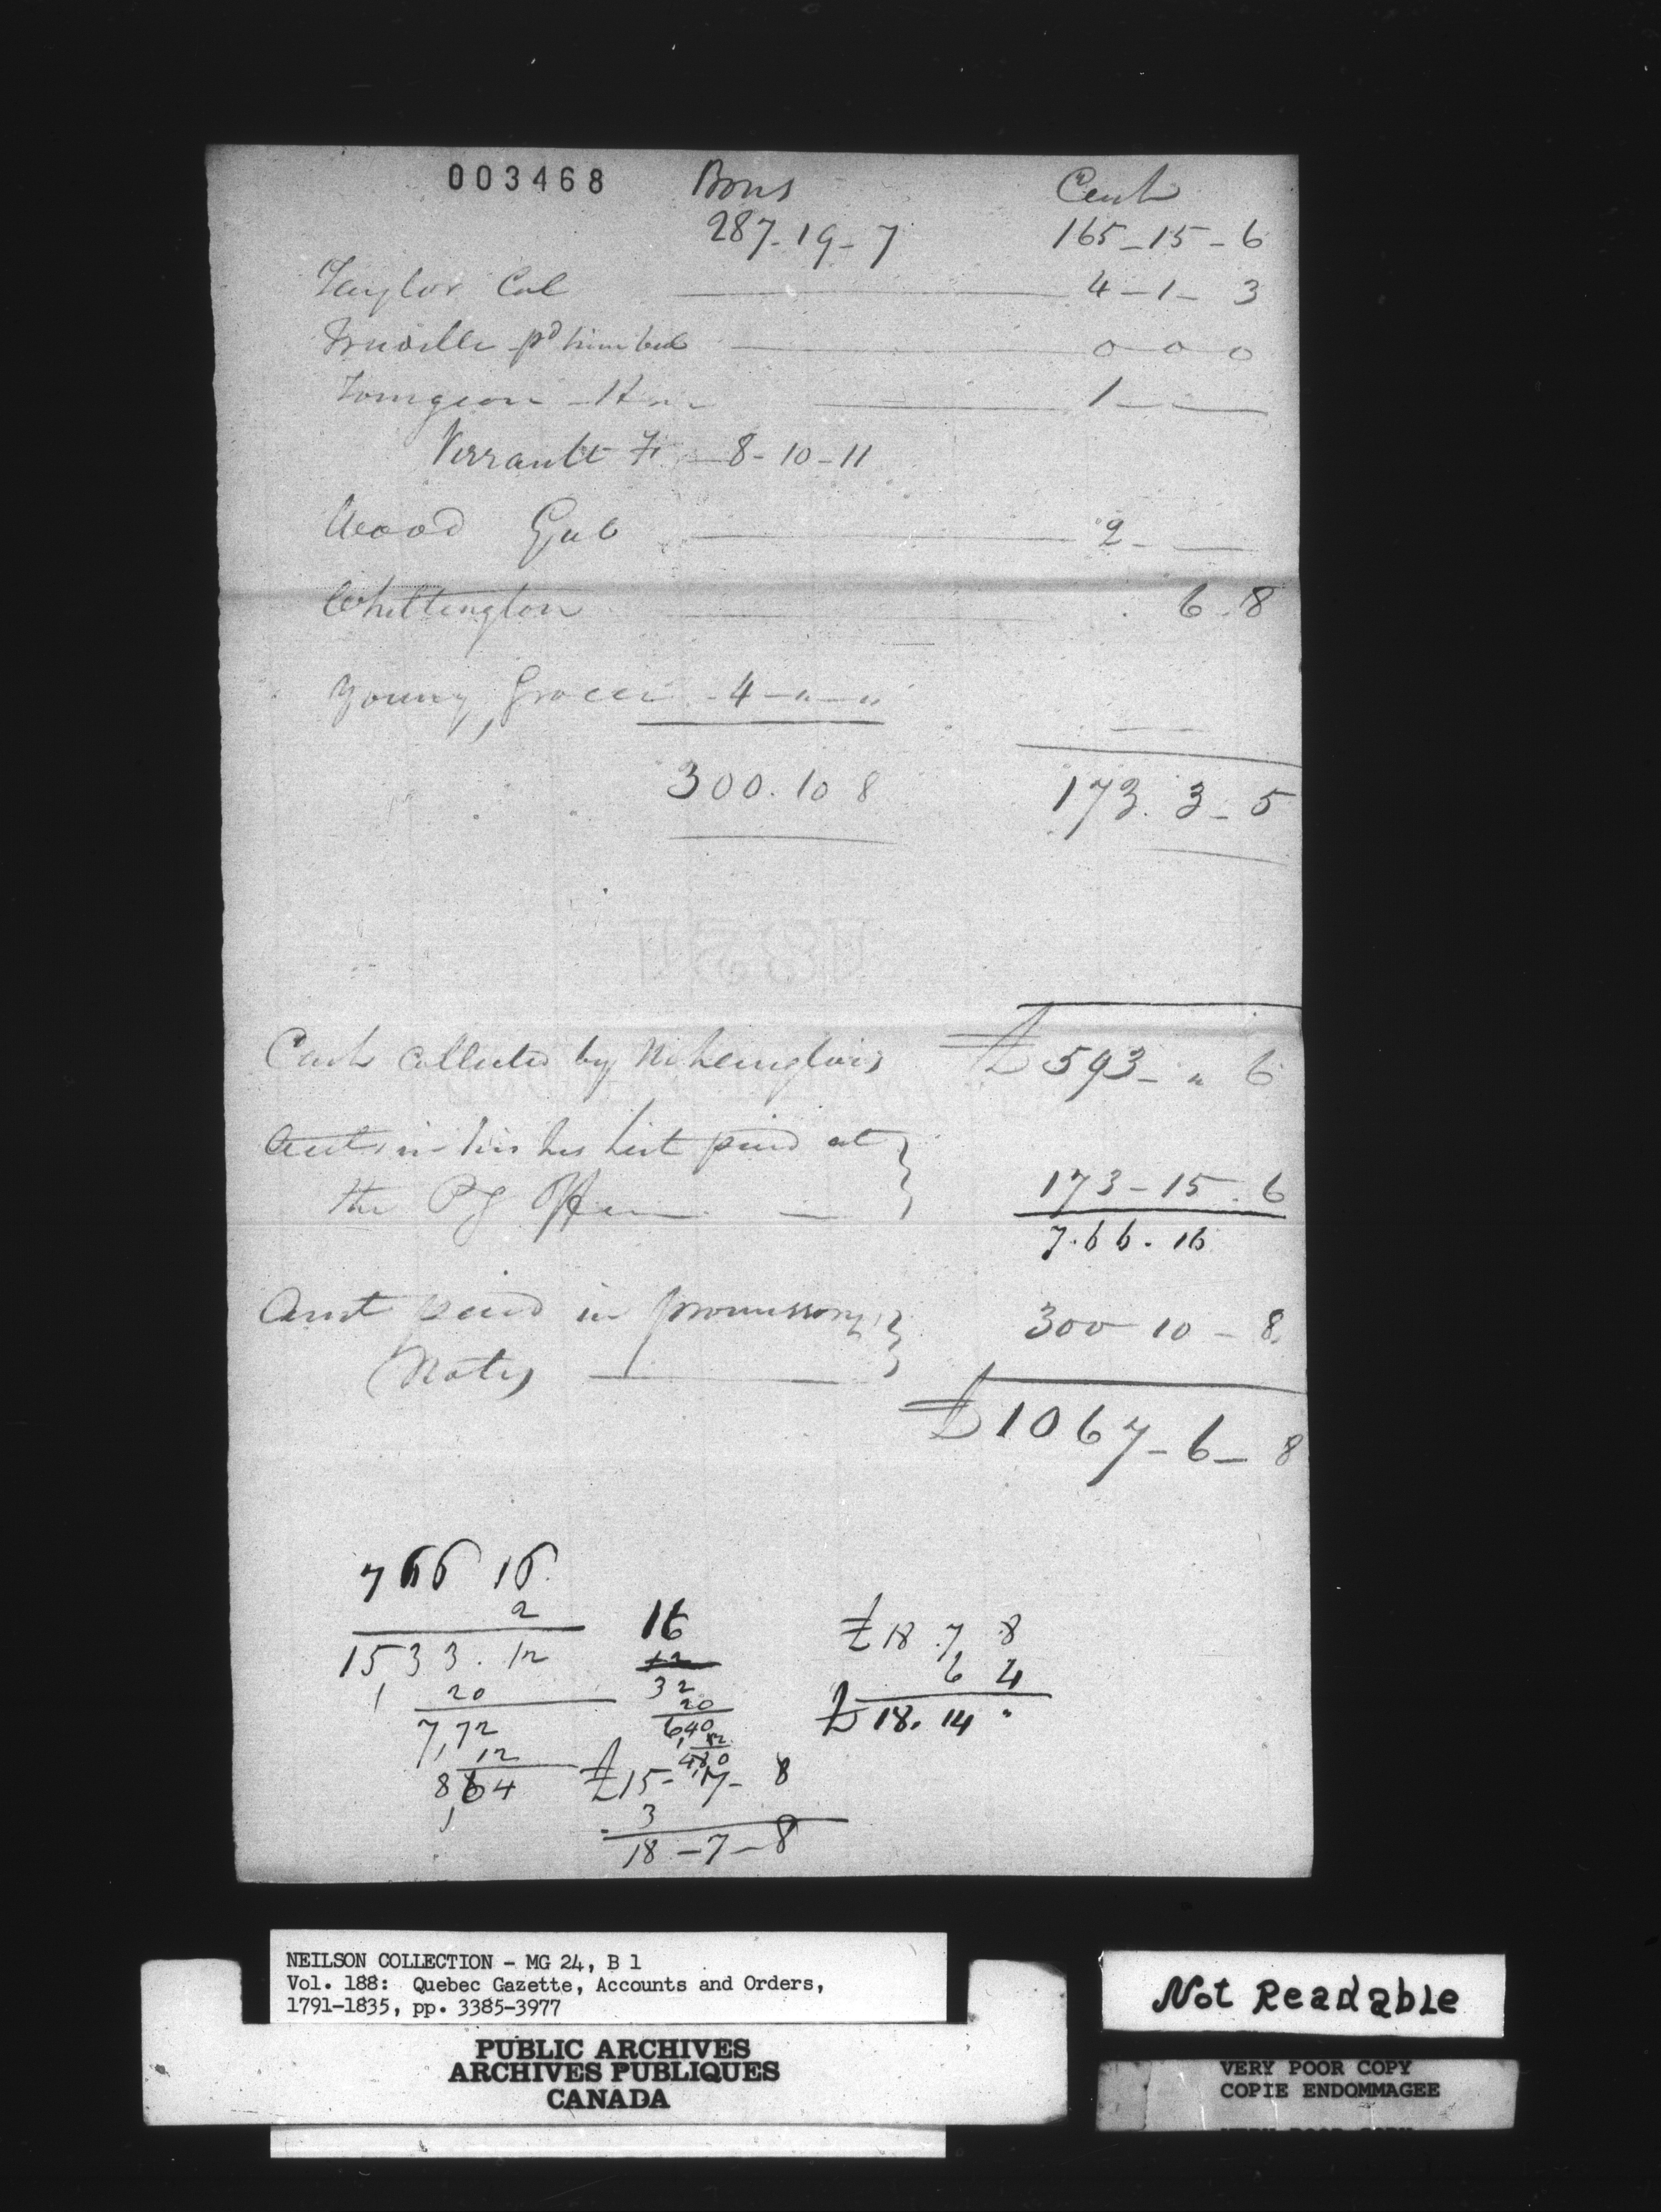 003468 Bons Cash
287-19-7 165-15-6
Taylor Col 4-1-3
pd himself 0 0 0
1
Verrault Fr 8-10-11
Wood Gub 2
Whittington 6-8
Young, Grocer 4-"-"
300.10 8 173.3-5
1821
Cash collected by Mr Langlois £593-"6
in his list paid at
the Office 173-15.6
7.66.16
Amt paid in promissory
Notes 300 10-8
£1067-6-8
766 16
2
1533.12
20
7,72
12
864
16
12
32
20
640
12
480
£15-7-8
3
18-7-8
£18.7.8
6 4
£18.14"
NEILSON COLLECTION - MG 24, B 1
Vol. 188: Quebec Gazette, Accounts and Orders,
1791-1835, pp. 3385-3977
PUBLIC ARCHIVES
ARCHIVES PUBLIQUES
CANADA
Not Readable
VERY POOR COPY
COPIE ENDOMMAGEE